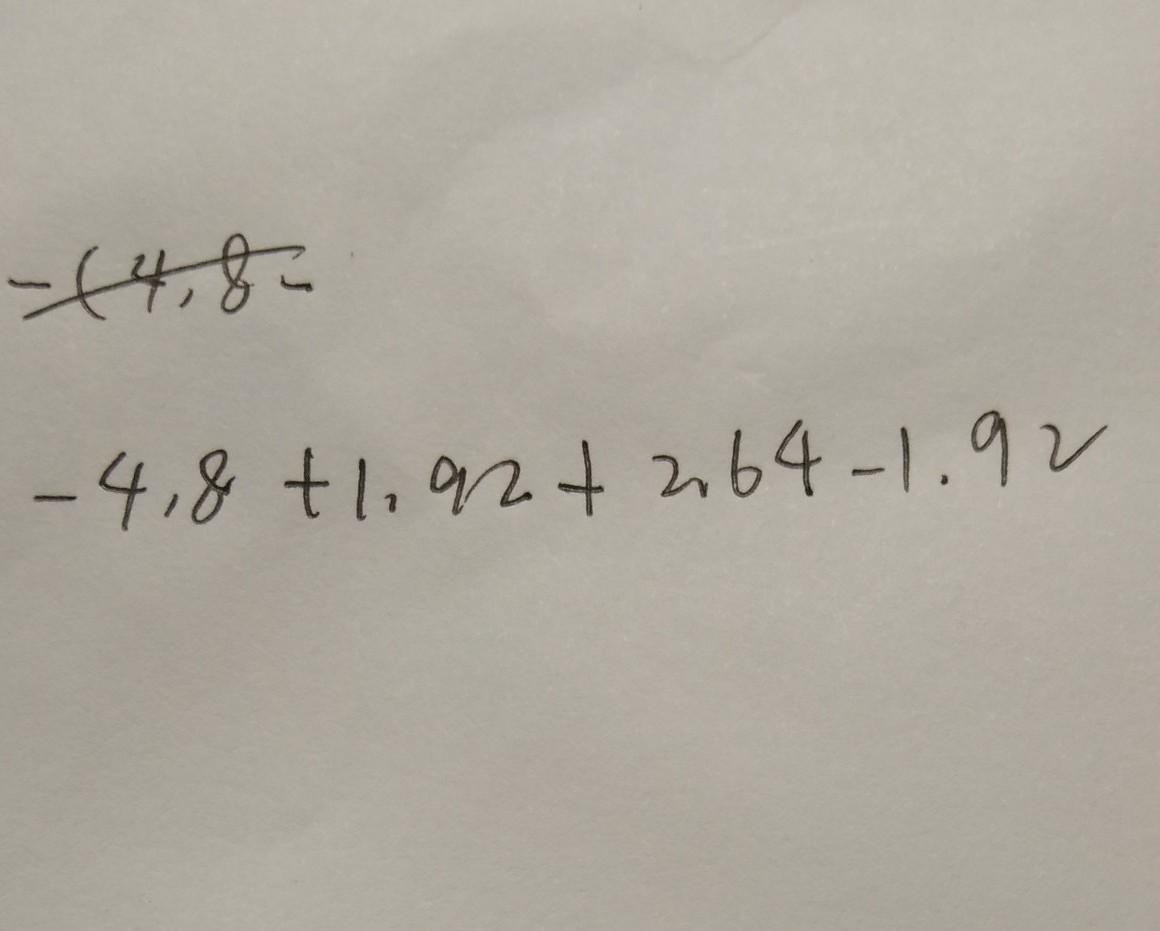 -(4.8-
-4.8 +1.92 + 2.64 -1.92